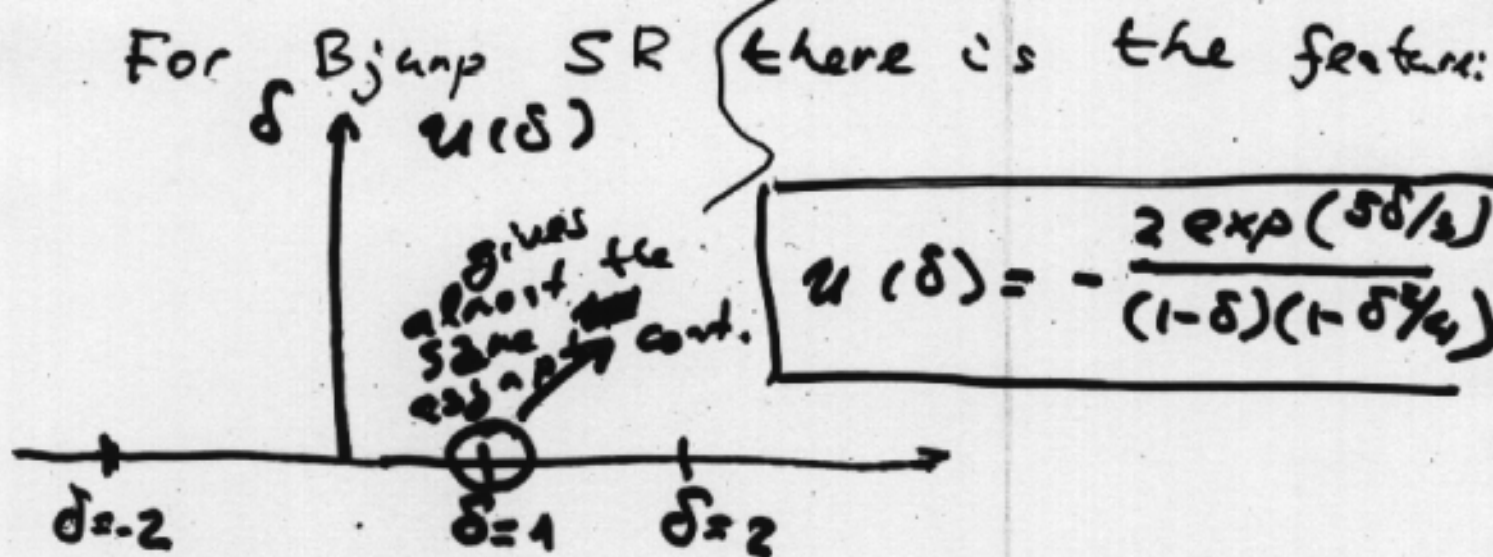 For Bjunp SR there is the feature:
δ u(δ)
gives
almost the
same cont.
u(δ) = - 2 exp(5δ/3) / (1-δ)(1-δ²/4)
δ=-2 δ=1 δ=2